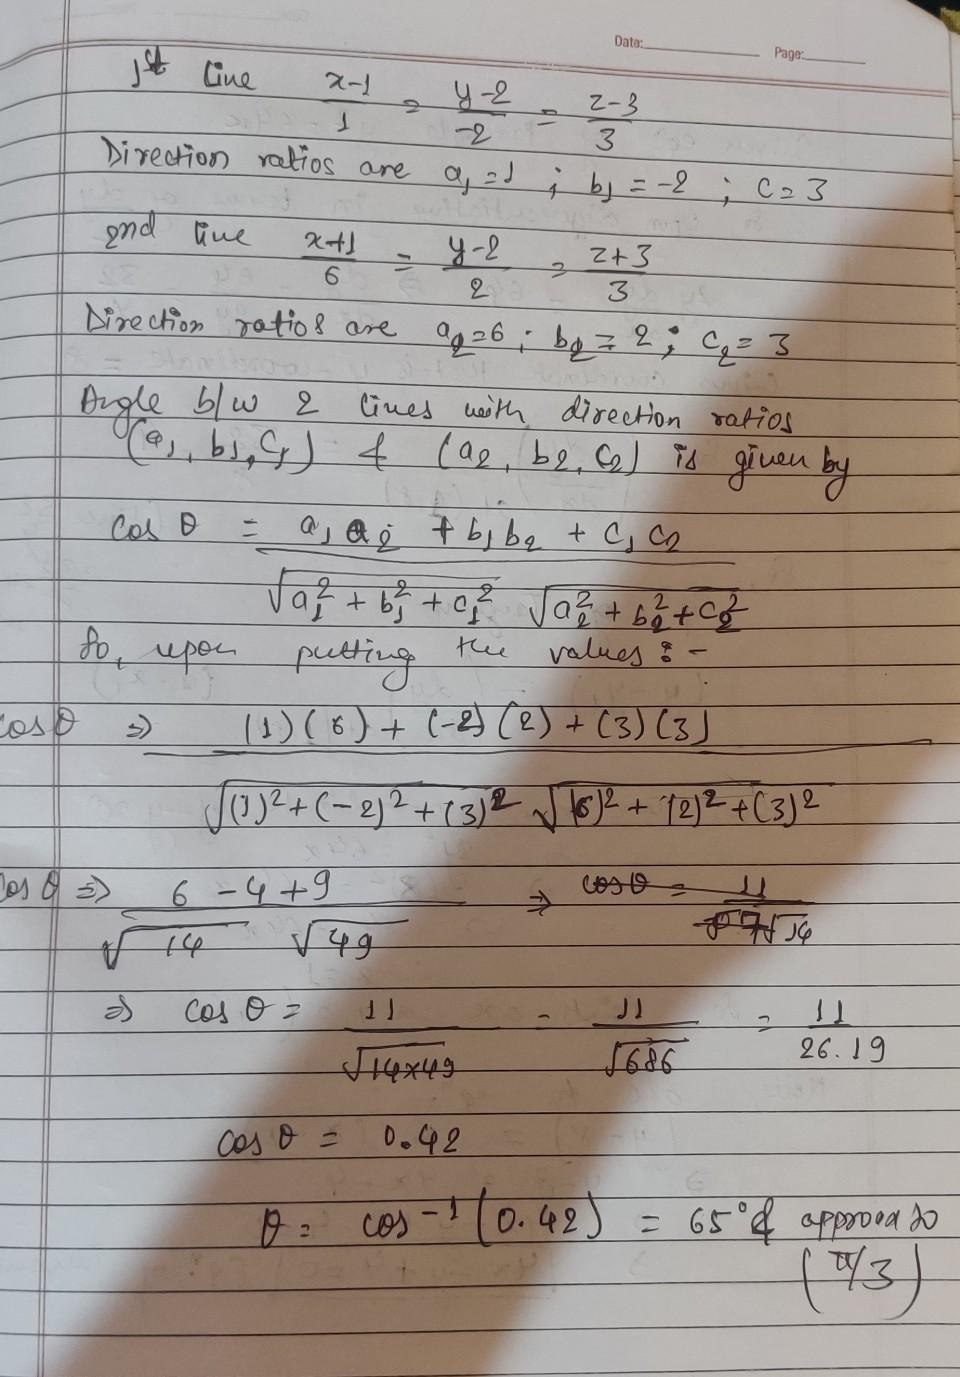 Date: Page:
1st line x-1/1 = y-2/-2 = z-3/3
Direction ratios are a₁=1 ; b₁=-2 ; c=3
2nd line x+1/6 = y-2/2 = z+3/3
Direction ratios are a₂=6 ; b₂=2 ; c₂=3
Angle b/w 2 lines with direction ratios
(a₁, b₁, c₁) & (a₂, b₂, c₂) is given by
cos θ = a₁a₂ + b₁b₂ + c₁c₂ / √a₁²+b₁²+c₁² √a₂²+b₂²+c₂²
So, upon putting the values :-
cos θ ⇒ (1)(6) + (-2)(2) + (3)(3) / √(1)²+(-2)²+(3)² √(6)²+(2)²+(3)²
cos θ ⇒ 6-4+9 / √14 √49 ⇒ cos θ = 11 / 7√14
⇒ cos θ = 11/√14×49 = 11/√686 = 11/26.19
cos θ = 0.42
θ = cos⁻¹(0.42) = 65°
(π/3)